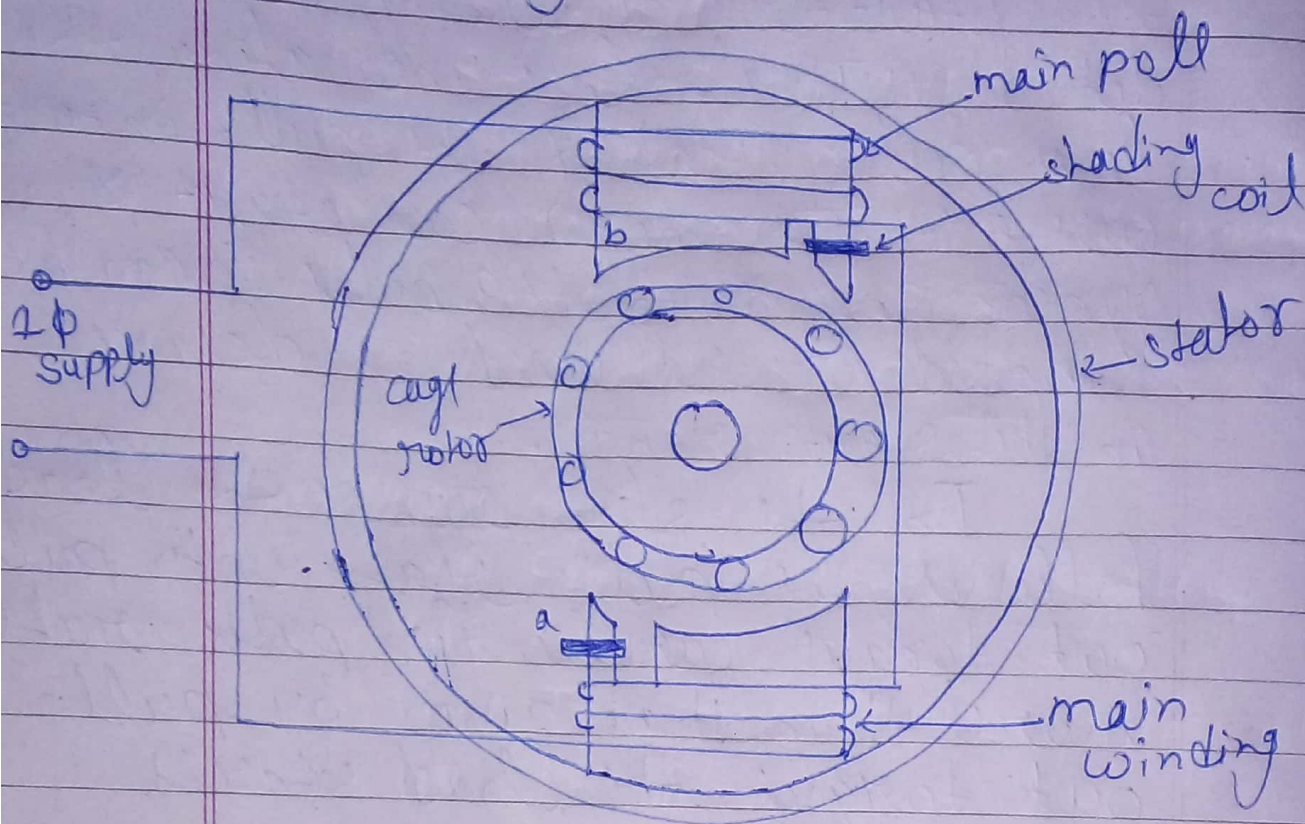 main poll
shading
coil
b
1φ
supply
stator
cage
rotor
a
main
winding